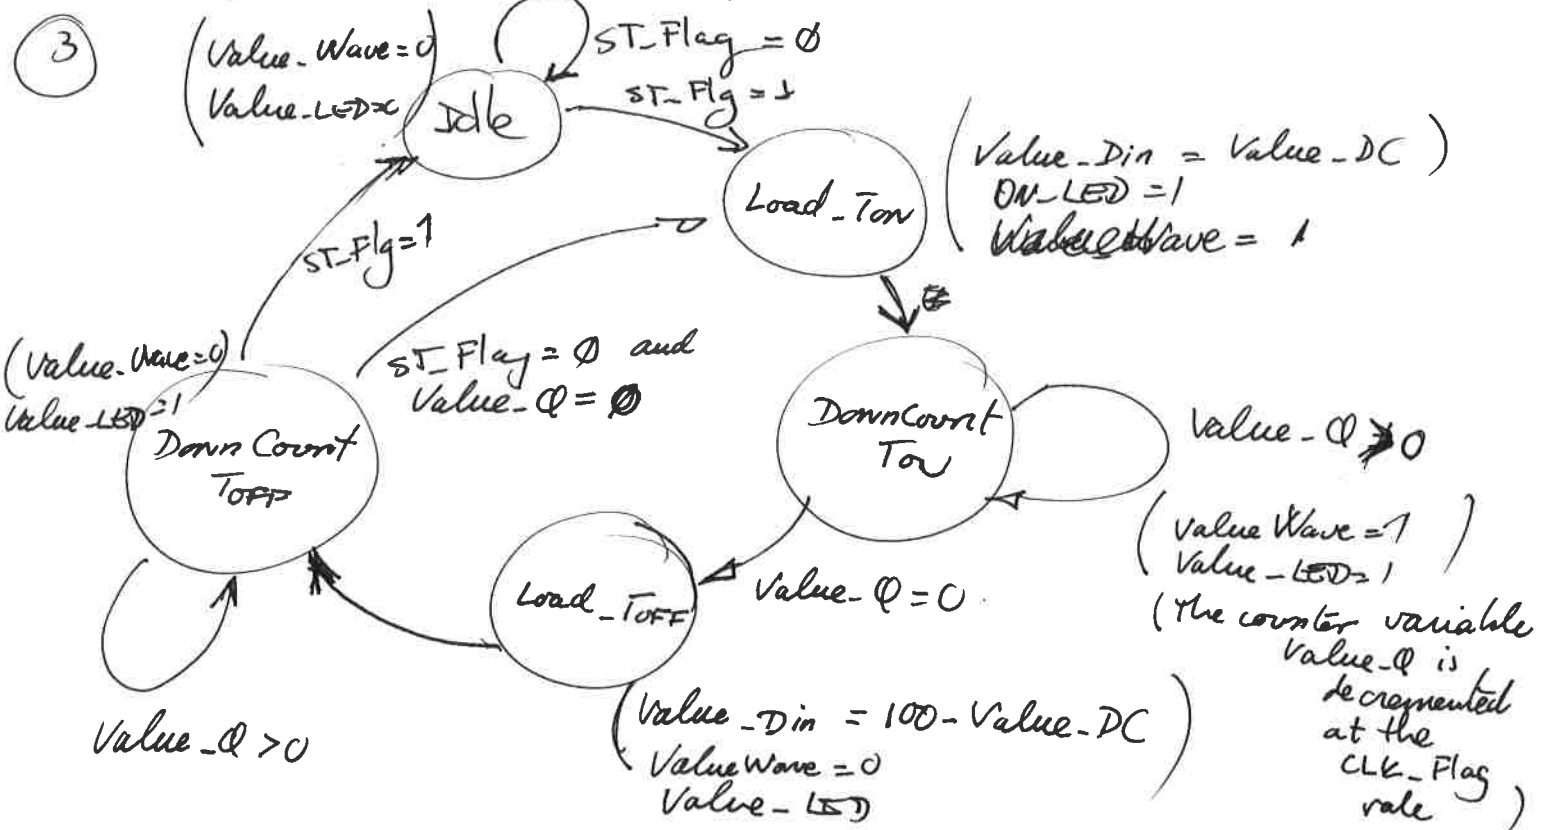 3
(Value_Wave=0
Value_LED=0)
Idle
ST_Flag = Ø
ST_Flg = 1
Load_TON
(Value_Din = Value_DC)
ON_LED = 1
Wave = 1
ST_Flg=1
ST_Flag = Ø and
Value_Q = Ø
(Value_Wave=0)
Value_LED=1
Down Count
TOFF
DownCount
TON
Value_Q > 0
(Value Wave = 1
Value_LED = 1)
(The counter variable
Value_Q is
decremented
at the
CLK_Flag
rate)
Value_Q = 0
Load_TOFF
(Value_Din = 100-Value_DC)
ValueWave = 0
Value_LED
Value_Q > 0